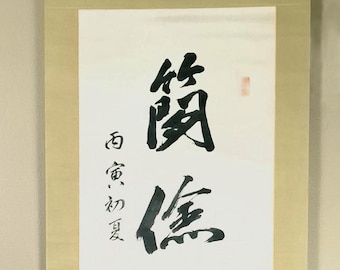 簡倹
丙寅初夏